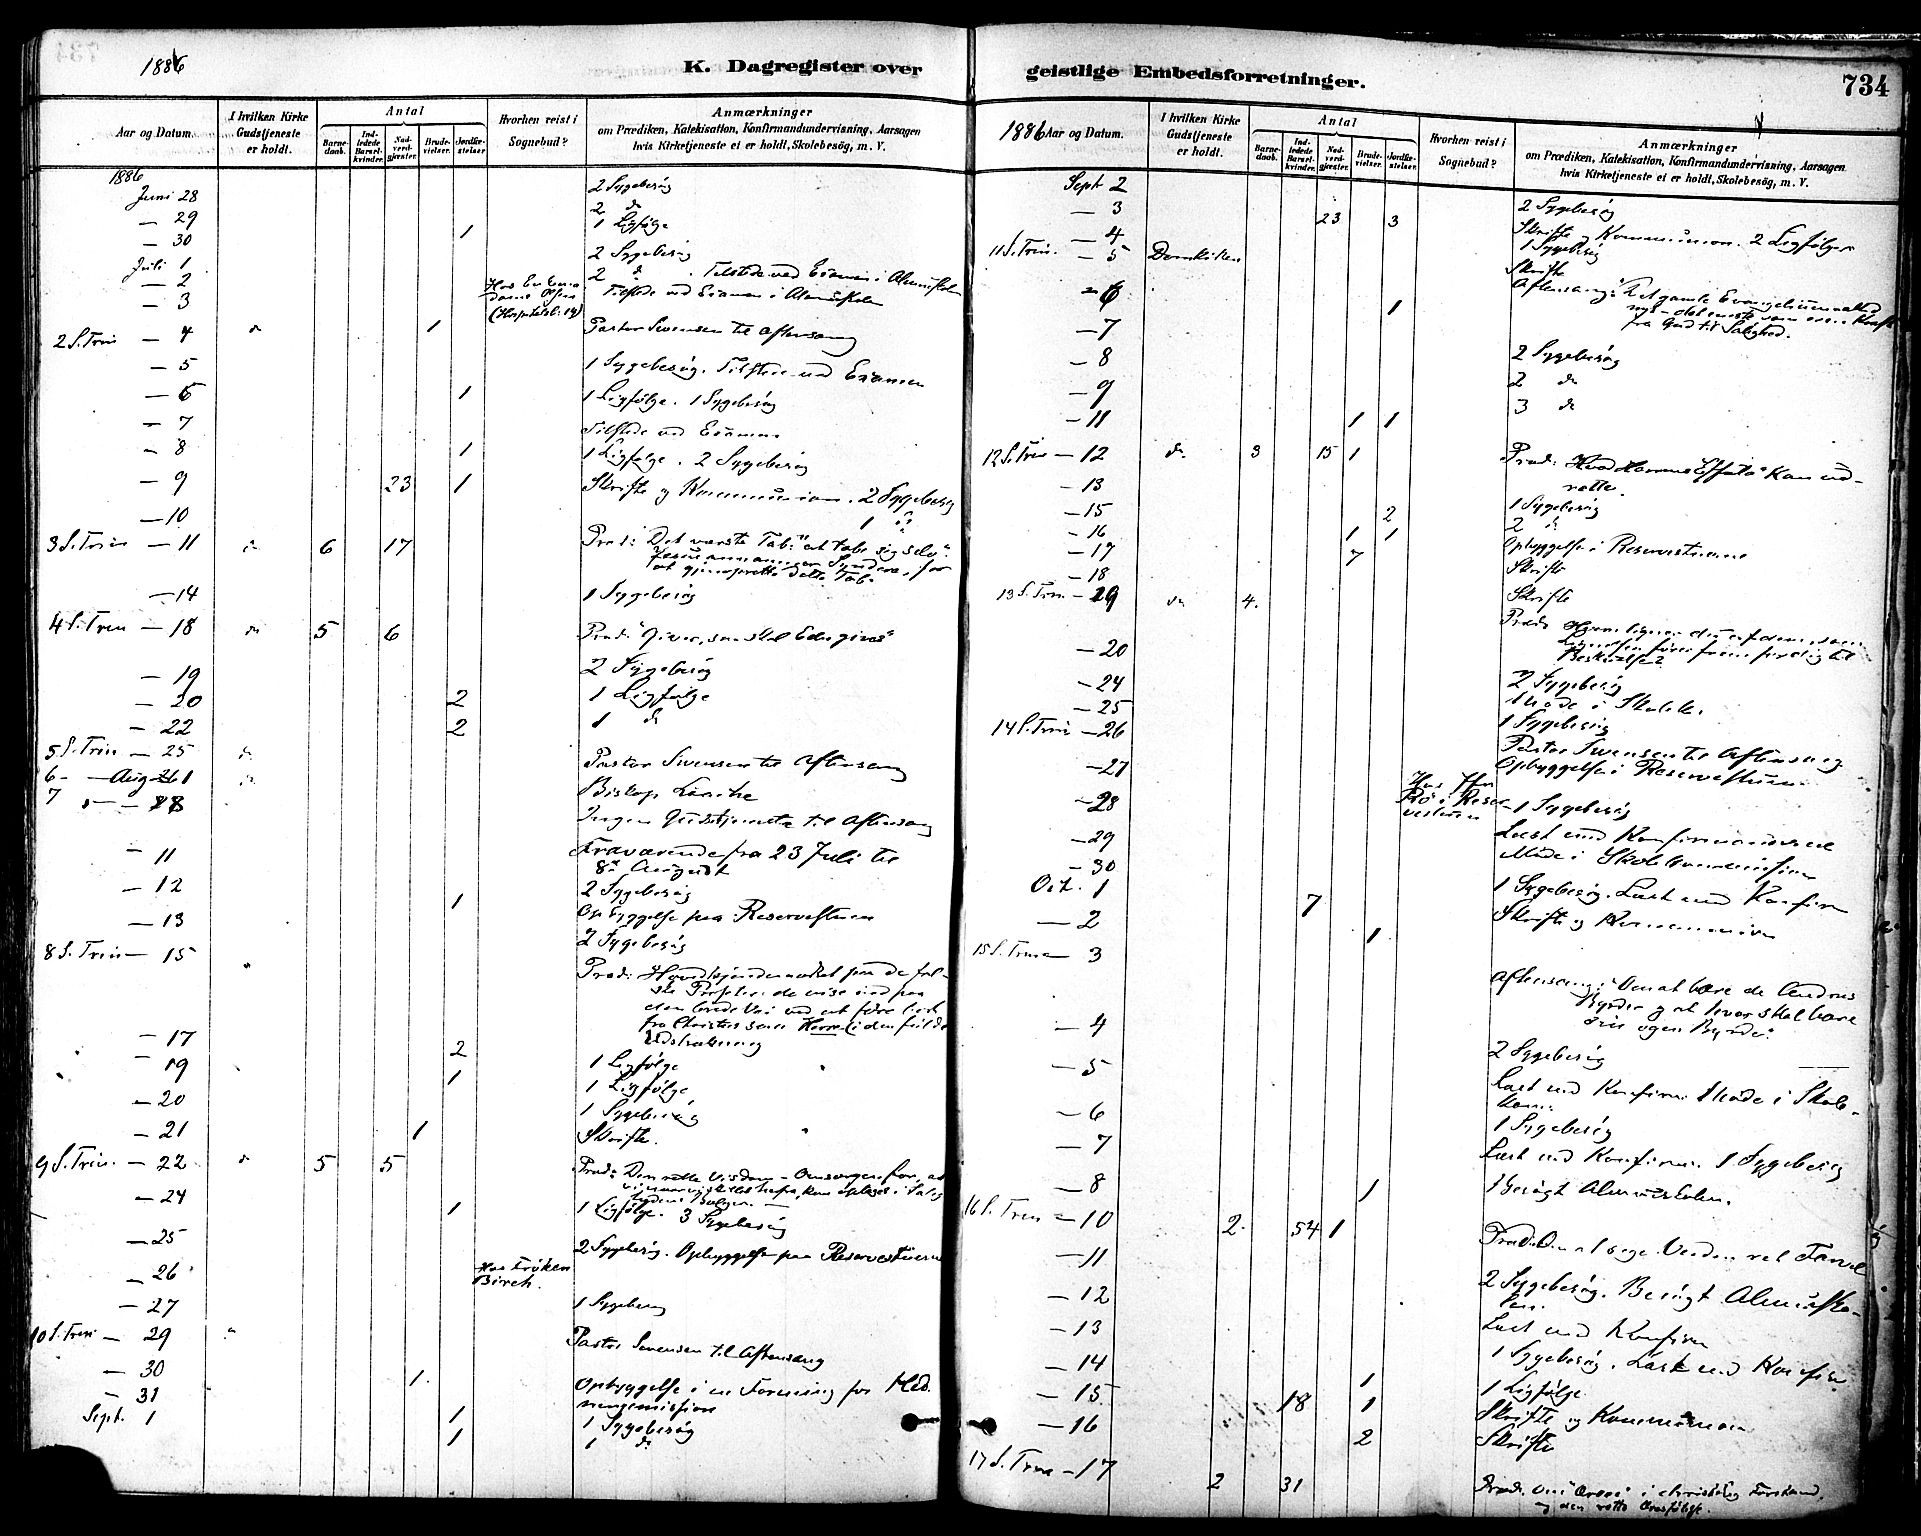 1886
K. Dagregister over
Aar og Datum.
I hvilken Kirke Gudstjeneste er holdt.
Antal
Barnedaab.
Indledede Barselkvinder.
Nadverdgjester.
Brudevielser.
Jordfæstelser.
Hvorhen reist i Sognebud?
Anmærkninger
om Prædiken, Katekisation, Konfirmandundervisning, Aarsagen
hvis Kirketjeneste ei er holdt, Skolebesøg, m. V.
1886
Juni 28 2 Sygebesøg
— 29 2 do
— 30 1 1 Ligfølge
Juli 1 2 Sygebesøg
— 2 2 do. Tilstede ved Examen i Almueskolen
— 3 Tilstede ved Examen i Almueskolen
(Hospitalsb: 19)
2 S. Trin — 4 do 1 Pastor Svensen til Aftensang
— 5 1 Sygebesøg. Tilstede ved Examen
— 6 1 1 Ligfølge. 1 Sygebesøg
— 7 Tilstede ved Examen
— 8 1 1 Ligfølge. 2 Sygebesøg
— 9 23 1 Skrifte og Kommunion. 2 Sygebesøg
— 10 1 do
3 S. Trin — 11 do 6 17 Præd: Det værste Tab: "at tabe sig selv".
at gjenoprette dette Tab.
— 14 1 Sygebesøg
4 S. Trin — 18 do 5 6 Præd: "Giver, saa skal Eder gives"
— 19 2 Sygebesøg
— 20 2 1 Ligfølge
— 22 2 1 do
5 S. Trin — 25 do Pastor Svensen til Aftensang
6 — — August 1 do Biskop
7 — 8 Ingen Gudstjeneste til Aftensang
Fraværende fra 23 Juli til
8de August
— 11 2 Sygebesøg
— 12 1 Opbyggelse paa Reservestuen
— 13 2 Sygebesøg
8 S. Trin — 15 " Præd: Hovedkjendemærket paa de fal-
ske Profeter: de vise ind paa
den brede Vei ved at føre bort
fra Christus som Herre i den fulde
Udstrækning
— 17 2 1 Ligfølge
— 19 1 1 Ligfølge
— 20 1 Sygebesøg
— 21 1 Skrifte.
9 S. Trin. — 22 do 5 5 Præd: Den rette Visdom – Omsorgen for, at
— 24 1 1 Ligfølge. 3 Sygebesøg
— 25 2 Sygebesøg. Opbyggelse paa Reservestuen
— 26 Hos Frøken
Birch.
— 27 1 Sygebesøg
10 S. Trin — 29 " Pastor Svensen til Aftensang
— 30 1 Opbyggelse i en Forening for Hed-
ningemission
— 31 1 1 Sygebesøg
Sept. 1 1 1 do
geistlige Embedsforretninger.
734
1886 Aar og Datum.
I hvilken Kirke Gudstjeneste er holdt.
Antal
Barnedaab.
Indledede Barselkvinder.
Nadverdgjester.
Brudevielser.
Jordfæstelser.
Hvorhen reist i Sognebud?
Anmærkninger
om Prædiken, Katekisation, Konfirmandundervisning, Aarsagen
hvis Kirketjeneste ei er holdt, Skolebesøg, m. V.
Sept 2 2 Sygebesøg
— 3 23 3 Skrifte og Kommunion. 2 Ligfølger
— 4 1 Sygebesøg
11 S. Trin. — 5 Domkirken Skrifte
Aftensang: "Det gamle Evangelium altid
nyt – det eneste som er en Kraft
fra Gud til Salighed.
— 6 1
— 7 2 Sygebesøg
— 8 2 do
— 9 3 do
— 11 1 1
12 S. Trin — 12 do. 3 15 1 Præd: Hvad Herrens "Effata" kan ud-
rette.
— 13 1 Sygebesøg
— 15 2 2 do
— 16 1 1 Opbyggelse i Reservestuerne
— 17 7 Skrifte
— 18 Skrifte
13 S. Trin — 19 do 4.
— 20 2 Sygebesøg
— 24 Møde i Skolek.
— 25 1 Sygebesøg
14 S. Trin — 26 Pastor Svensen til Aftensang
— 27 Opbyggelse i Reservestuen
— 28 1 Sygebesøg
— 29 Læst med Konfirmanderne
— 30 Møde i Skolekommissionen
Oct. 1 7 1 Sygebesøg. Læst med Konfirm
— 2 1 Skrifte og Kommunion
15 S. Trin 3 Aftensang: Om at bære de Andres
Byrder og at hver skal bære
sin egen Byrde".
— 4 2 Sygebesøg
— 5 Læst med Konfirm. Møde i Skole-
kom.
— 6 1 Sygebesøg
— 7 Læst med Konfirm. 1 Sygebesøg
— 8 1 Besøgt Almueskolen.
16 S. Trin — 10 2. 54 1 Præd: Om at sige Verden ret Farvel
— 11 2 Sygebesøg. Besøgt Almuesko-
len.
— 12 Læst med Konfirm
— 13 1 Sygebesøg. Læst med Konfirm.
— 14 1 1 Ligfølge
— 15 18 1 Skrifte og Kommunion
— 16 2 Skrifte
17 S. Trin — 17 2 31 Præd. Om "Æren" i christelig Forstand,
og den rette Æresfølelse.